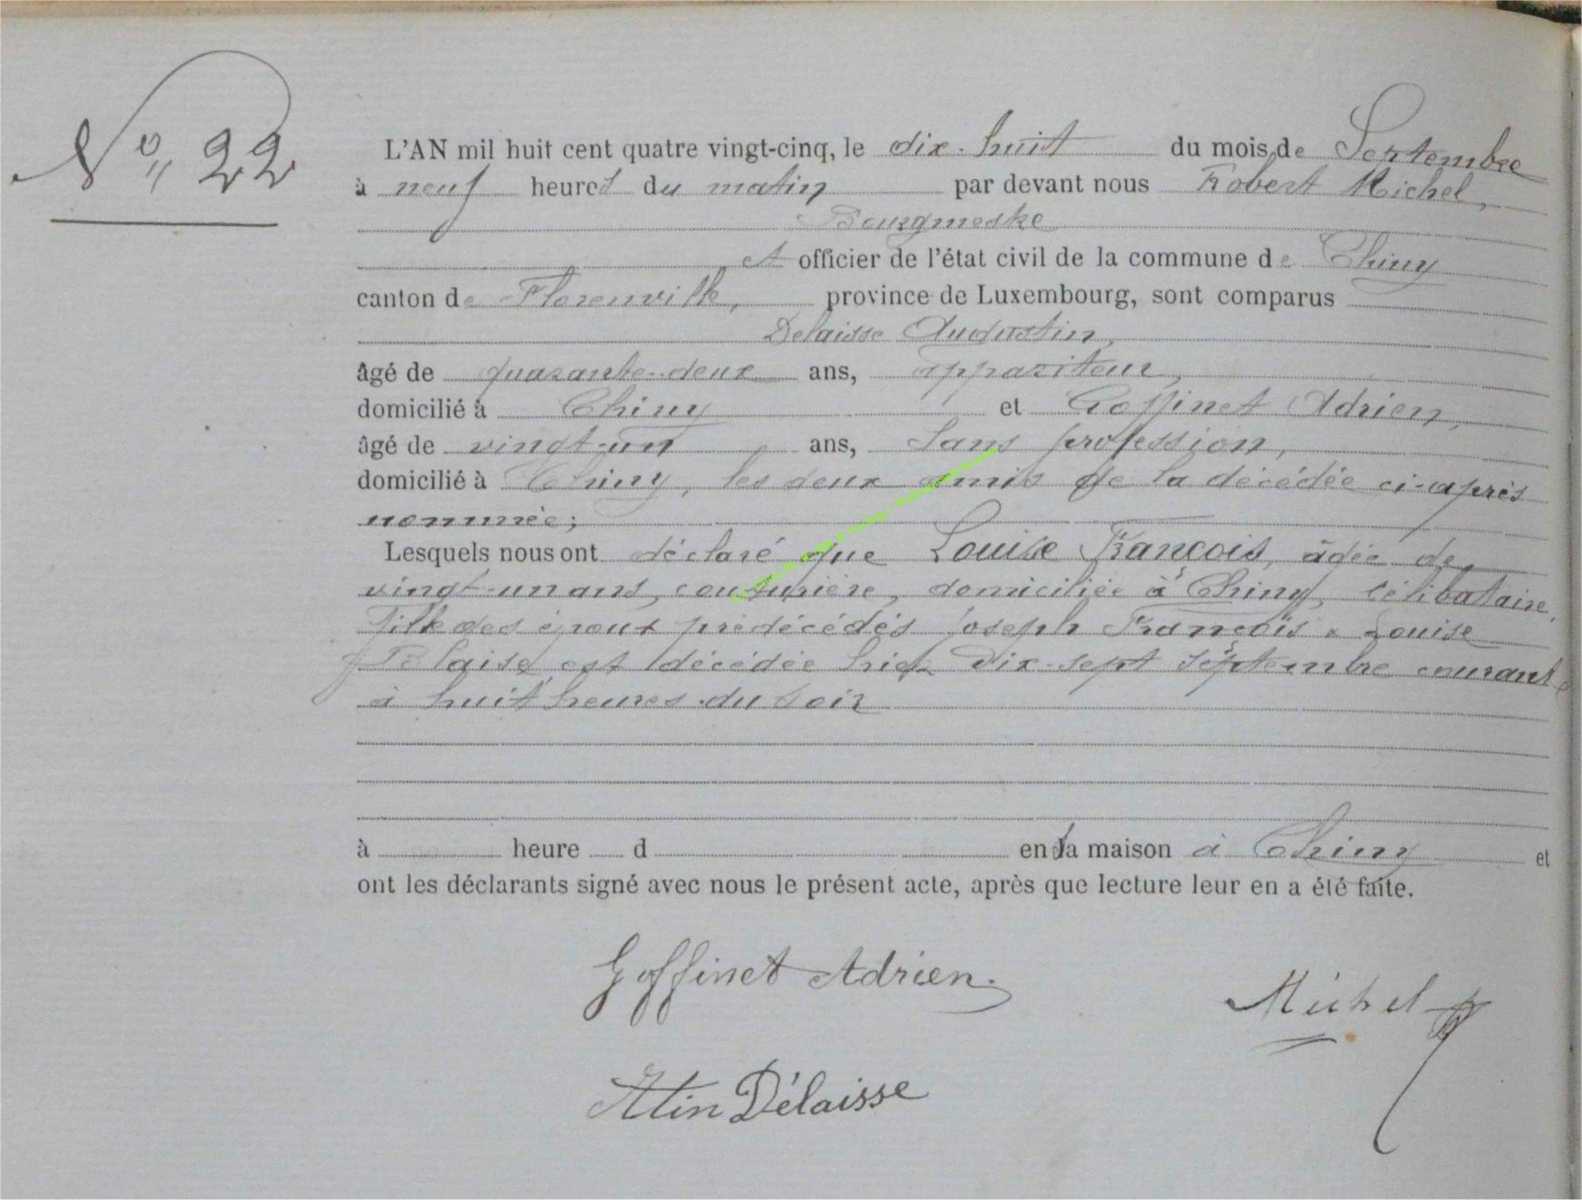 N° 22
L'AN mil huit cent quatre vingt-cinq, le dix-huit du mois de Septembre
à neuf heures du matin par devant nous Robert Michel,
Bourgmestre
officier de l'état civil de la commune de Chiny
canton de Florenville, province de Luxembourg, sont comparus
Delaisse Augustin,
âgé de quarante-deux ans, appariteur,
domicilié à Chiny et Goffinet Adrien,
âgé de vingt-un ans, sans profession,
domicilié à Chiny, les deux amis de la décédée ci-après
nommée;
Lesquels nous ont déclaré que Louise François, âgée de
vingt-un ans, couturière, domiciliée à Chiny, célibataire,
fille des époux prédécédés Joseph François & Louise
Blaise, est décédée hier dix-sept septembre courant
à huit heures du soir
à heure d en sa maison à Chiny et
ont les déclarants signé avec nous le présent acte, après que lecture leur en a été faite.
Goffinet Adrien.
Michel
Atin Délaisse